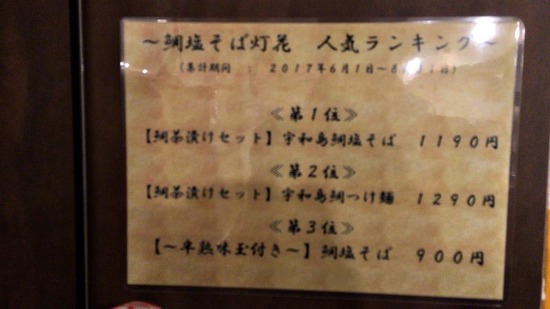 ～鯛塩そば灯花　人気ランキング～
（集計期間　：　２０１７年６月１日～８
≪第１位≫
【鯛茶漬けセット】宇和島鯛塩そば　１１９０円
≪第２位≫
【鯛茶漬けセット】宇和島鯛つけ麺　１２９０円
≪第３位≫
【～半熟味玉付き～】鯛塩そば　９００円